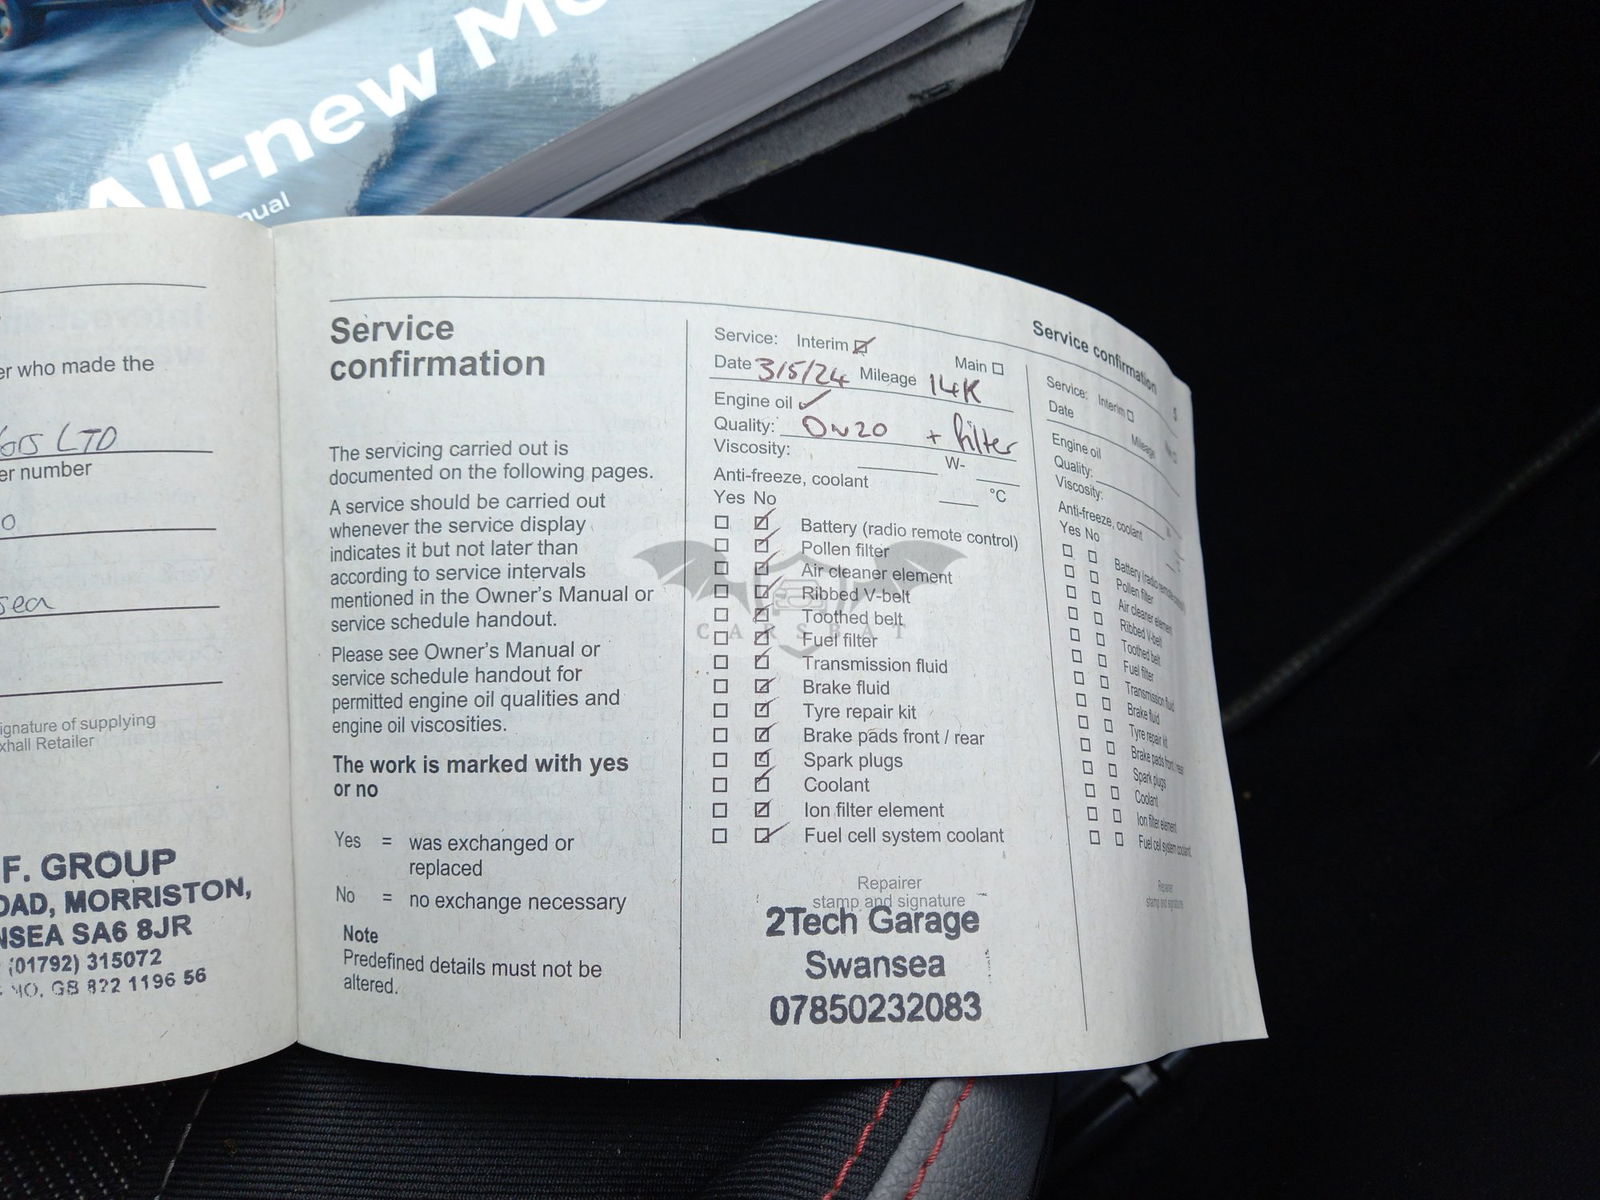 All-new Mo
nual
er who made the
ors LTD
er number
o
sea
ignature of supplying
xhall Retailer
F. GROUP
OAD, MORRISTON,
NSEA SA6 8JR
(01792) 315072
NO. GB 822 1196 56
Service
confirmation
The servicing carried out is
documented on the following pages.
A service should be carried out
whenever the service display
indicates it but not later than
according to service intervals
mentioned in the Owner's Manual or
service schedule handout.
Please see Owner's Manual or
service schedule handout for
permitted engine oil qualities and
engine oil viscosities.
The work is marked with yes
or no
Yes = was exchanged or
replaced
No = no exchange necessary
Note
Predefined details must not be
altered.
Service: Interim Main
Date 3/5/24 Mileage 14K
Engine oil ✓
Quality: 0w20 + filter
Viscosity: W-
Anti-freeze, coolant °C
Yes No
Battery (radio remote control)
Pollen filter
Air cleaner element
Ribbed V-belt
Toothed belt
Fuel filter
Transmission fluid
Brake fluid
Tyre repair kit
Brake pads front / rear
Spark plugs
Coolant
Ion filter element
Fuel cell system coolant
Repairer
stamp and signature
2Tech Garage
Swansea
07850232083
CARSBAT
Service confirmation 5
Service: Interim
Date Mileage
Engine oil
Quality:
Viscosity:
Anti-freeze, coolant
Yes No
Battery (radio remote control)
Pollen filter
Air cleaner element
Ribbed V-belt
Toothed belt
Fuel filter
Transmission fluid
Brake fluid
Tyre repair kit
Brake pads front / rear
Spark plugs
Coolant
Ion filter element
Fuel cell system coolant
Repairer
stamp and signature